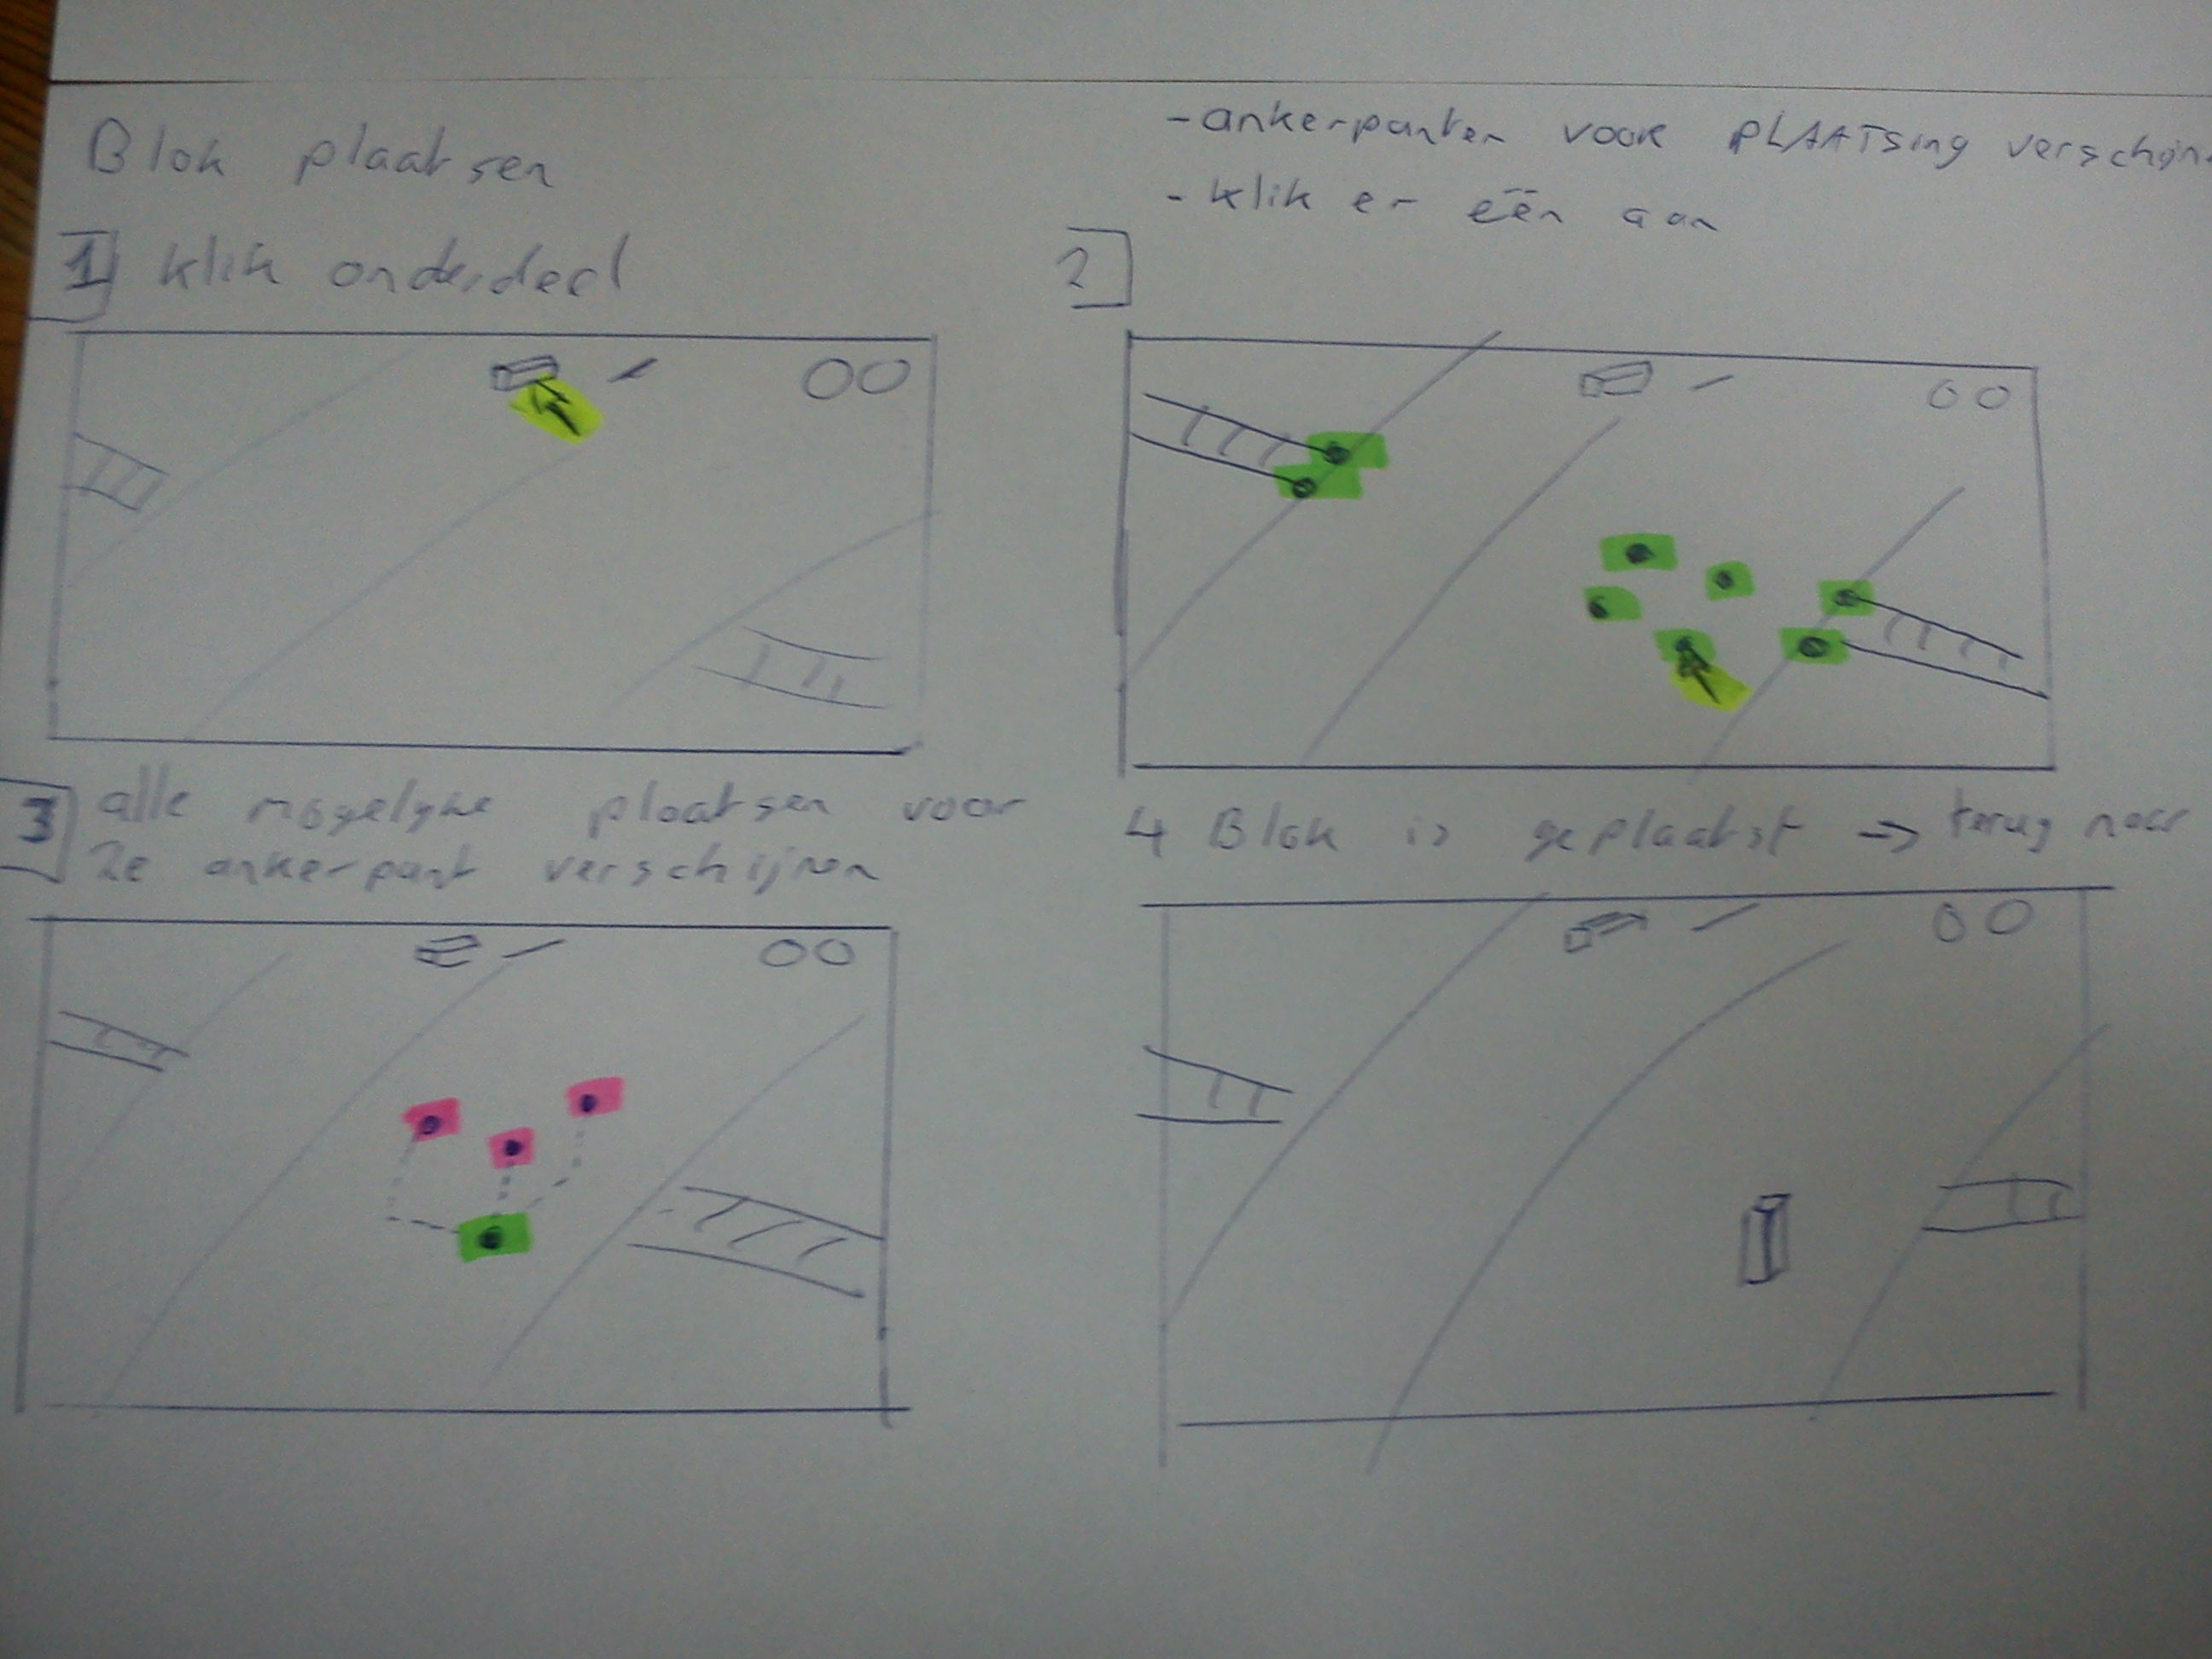 Blok plaatsen
1 klik onderdeel
- ankerpunten voor PLAATSing verschijn
- klik er één aan
2
3 alle mogelijke plaatsen voor
2e ankerpunt verschijnen
4 Blok is geplaatst → terug naar